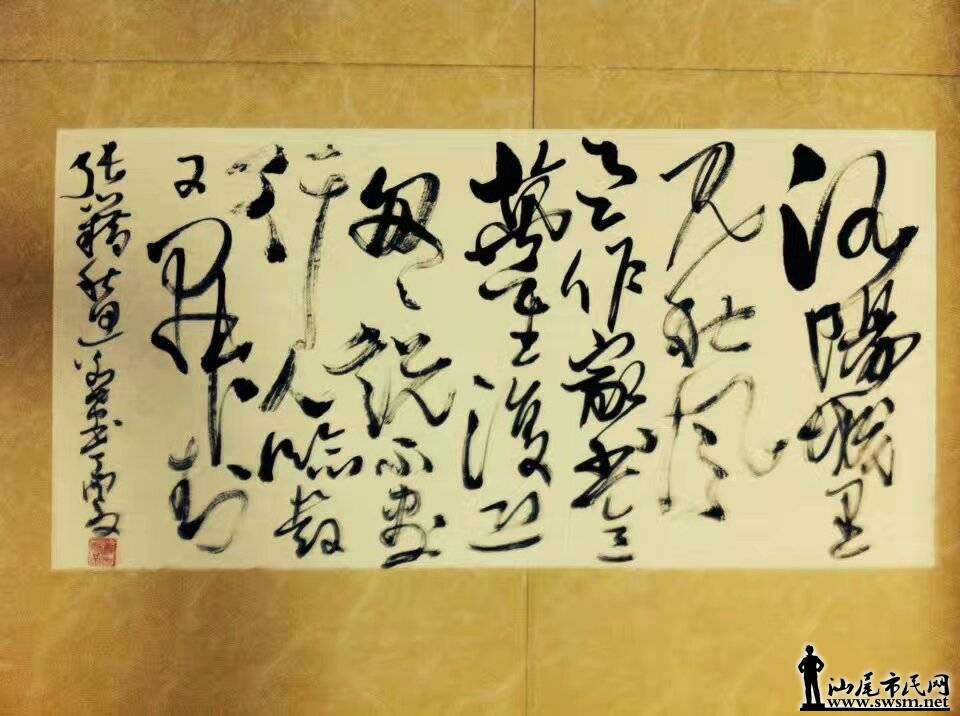 洛陽城里
见秋風
欲作家書意
萬重復恐
匆匆說不盡
行人臨發
又開封
張籍秋思
汕尾市民网
www.swsm.net